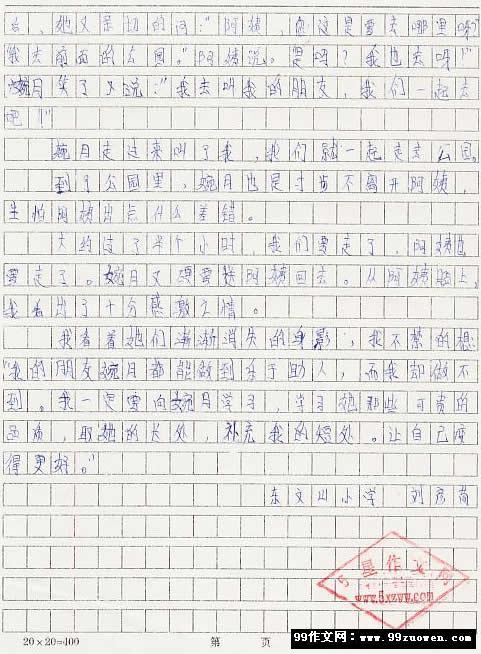 后，她又亲切的问："阿姨，您这是要去哪里呀？"
"我去前面的公园。"阿姨说。"是吗？我也去呀！"
婉月笑了又说："我去叫我的朋友，我们一起去
吧！"
婉月走过来叫了我，我们就一起走去公园。
到了公园里，婉月也是寸步不离开阿姨，
生怕阿姨出点什么差错。
大约过了半个小时，我们要走了，阿姨也
要走了。婉月又要送阿姨回去。从阿姨脸上，
我看出了十分感激之情。
我看着她们渐渐消失的身影，我不禁的想：
"我的朋友婉月都能做到乐于助人，而我却做不
到。我一定要向婉月学习，学习她那些可贵的
品质，取她的长处，补充我的短处。让自己变
得更好。"
东文山小学 刘彦
5星作文网
www.5xzww.com
20×20=400 第 页
99作文网：www.99zuowen.com